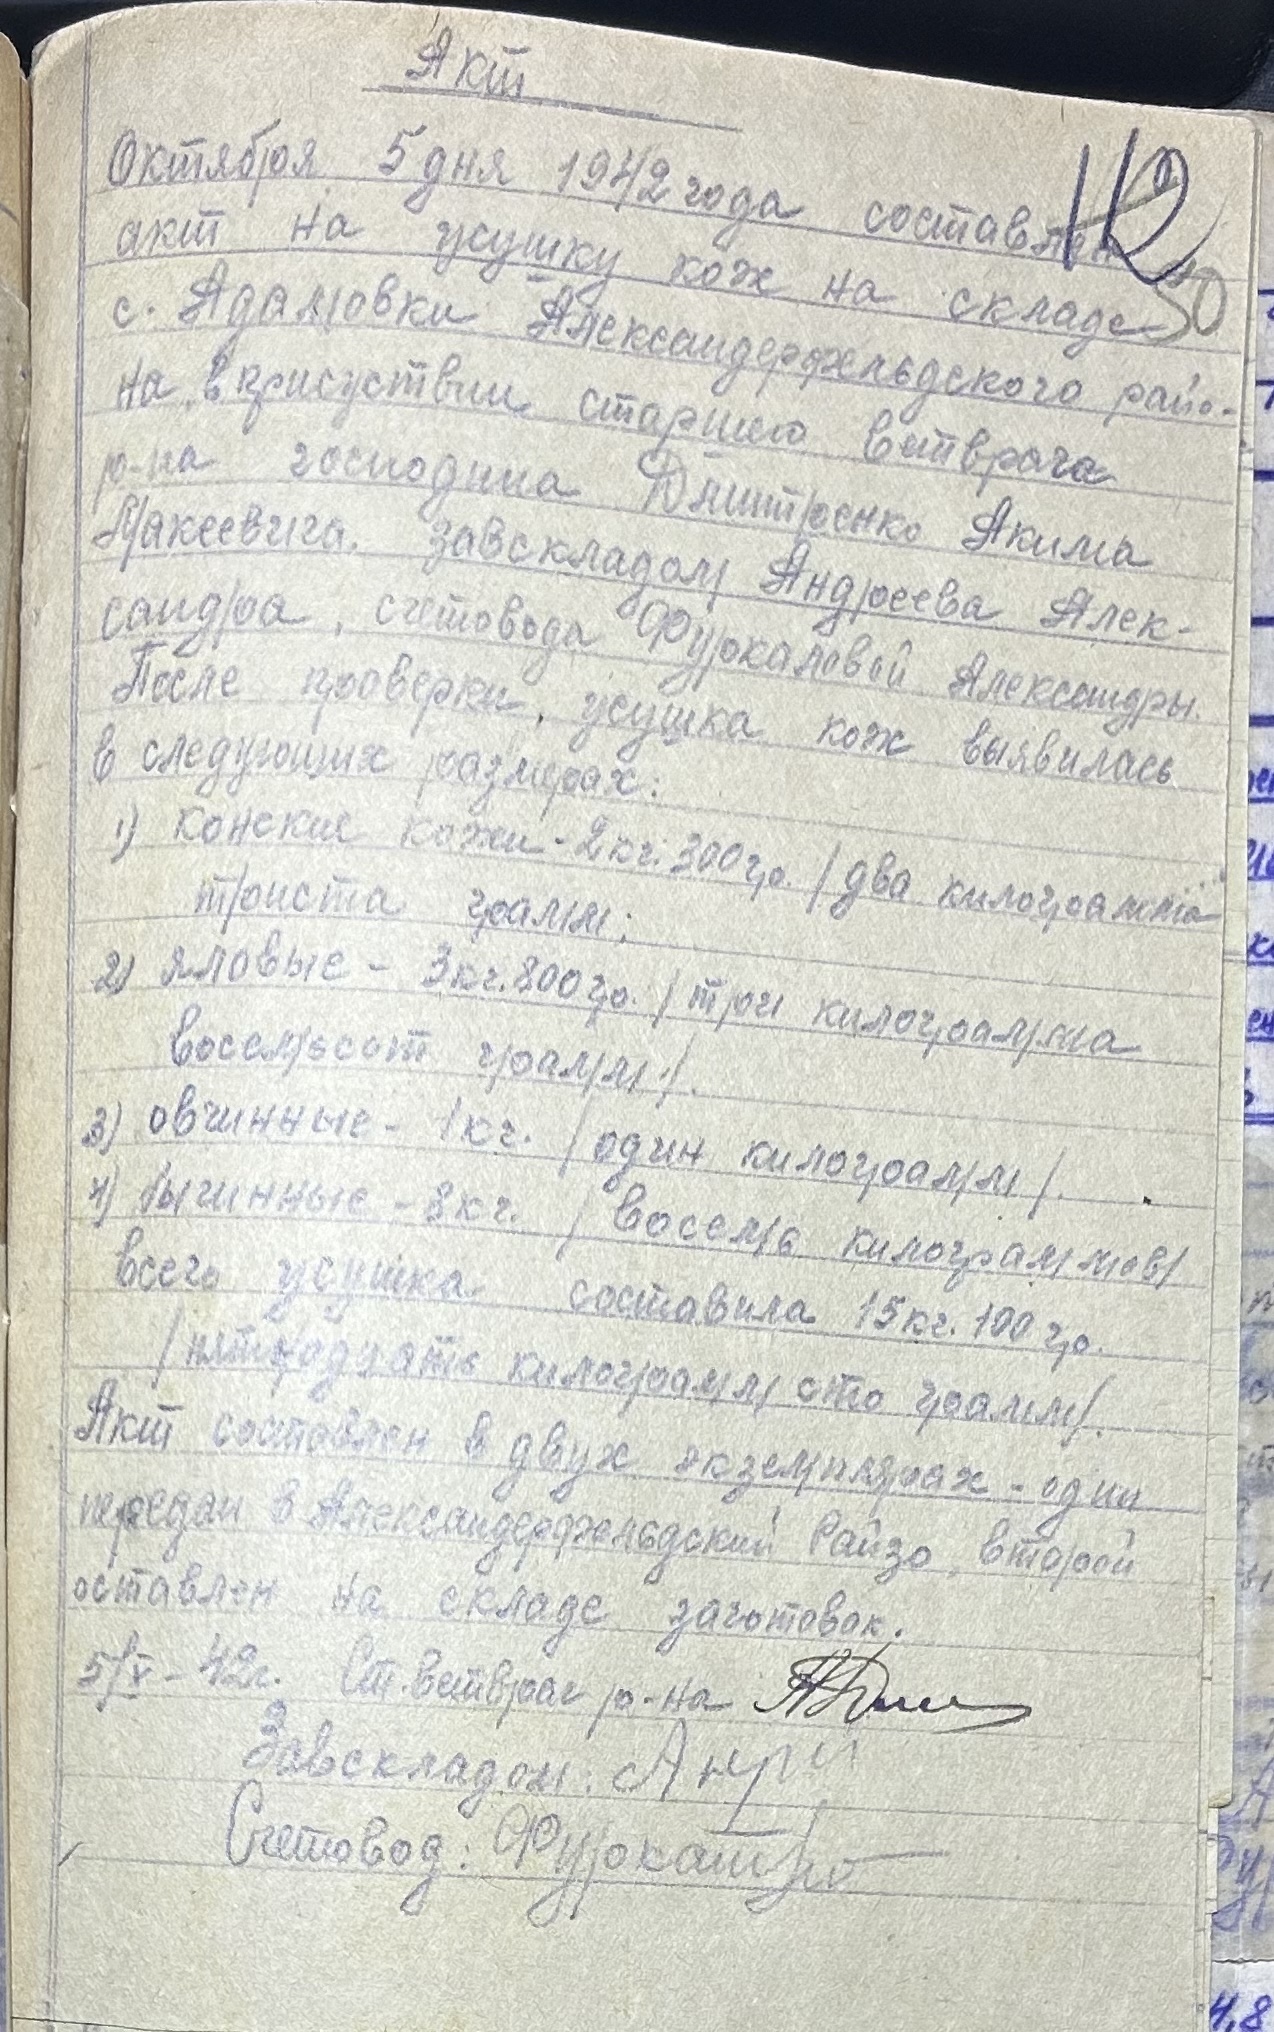 Акт
112
Октября 5 дня 1942 года составлен
50
акт на усушку кож на складе
с. Адамовки Александерфельдского райо-
на, в прис​уствии старшего ветврача
р-на господина Дмитренко Акима
Макеевича, завскладом Андреева Алек-
сандра, счетовода Фуркаловой Александры.
После проверки, усушка кож выявилась
в следующих размерах:
1) конские кожи - 2 кг. 300 гр. /два килограмма
триста грамм;
2) яловые - 3 кг. 800 гр. /три килограмма
восемьсот грамм/.
3) овчинные - 1 кг. /один килограмм/.
4) бычинные - 8 кг. /восемь килограммов/
Всего усушка составила 15 кг. 100 гр.
/пятнадцать килограмм сто грамм/.
Акт составлен в двух экземплярах - один
передан в Александерфельдский Райзо, второй
оставлен на складе заготовок.
5/X - 42 г. Ст. ветврач р-на
Завскладом:
Счетовод:
4,8